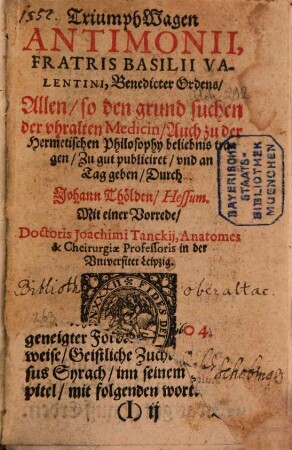 1552.
TriumphWagen
ANTIMONII,
FRATRIS BASILII VA-
LENTINI, Benedicter Ordens/
Allen/ so den grund suchen
der vhralten Medicin/ Auch zu der
Hermetischen Philosophy beliebnis tra-
gen/ Zu gut publiciret/ vnd an
Tag geben/ Durch
Johann Thölden/ Hessum.
Mit einer Vorrede/
Doctoris Joachimi Tanckij, Anatomes
& Cheirurgiæ Professoris in der
Vniversitet Leipzig.
BAYERISCHE
STAATS-
BIBLIOTHEK
MUENCHEN
oberaltac
FIDES DEI
04.
geneigter
weise/ Geistliche Zuch
sus Syrach/ inn seinem
pitel/ mit folgenden wort
(I) ij